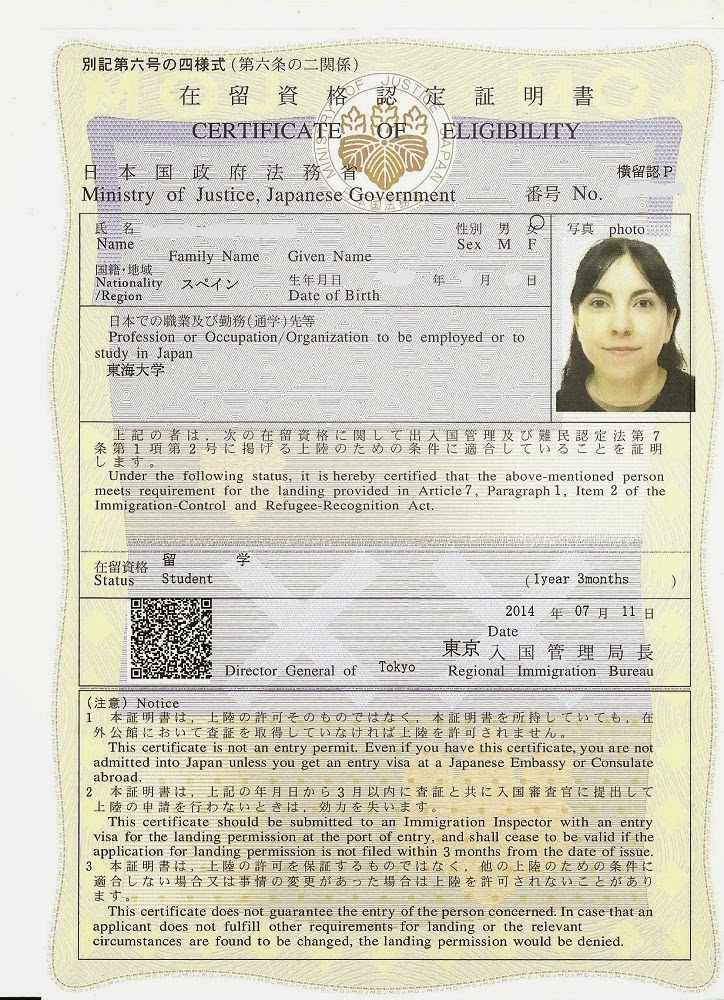 別記第六号の四様式(第六条の二関係)
在留資格認定証明書
CERTIFICATE OF ELIGIBILITY
日本国政府法務省
Ministry of Justice, Japanese Government
横留認P
番号 No.
氏名
Name
Family Name Given Name
性別 男 女
Sex M F
写真 photo
国籍・地域
Nationality
/Region
スペイン
生年月日 年 月 日
Date of Birth
日本での職業及び勤務(通学)先等
Profession or Occupation/Organization to be employed or to
study in Japan
東海大学
上記の者は、次の在留資格に関して出入国管理及び難民認定法第7
条第1項第2号に掲げる上陸のための条件に適合していることを証明
します。
Under the following status, it is hereby certified that the above-mentioned person
meets requirement for the landing provided in Article 7, Paragraph 1, Item 2 of the
Immigration-Control and Refugee-Recognition Act.
在留資格 留学
Status Student (1year 3months )
2014 年 07 月 11 日
Date
東京 入国管理局長
Director General of Tokyo Regional Immigration Bureau
(注意) Notice
1 本証明書は、上陸の許可そのものではなく、本証明書を所持していても、在
外公館において査証を取得していなければ上陸を許可されません。
This certificate is not an entry permit. Even if you have this certificate, you are not
admitted into Japan unless you get an entry visa at a Japanese Embassy or Consulate
abroad.
2 本証明書は、上記の年月日から3月以内に査証と共に入国審査官に提出して
上陸の申請を行わないときは、効力を失います。
This certificate should be submitted to an Immigration Inspector with an entry
visa for the landing permission at the port of entry, and shall cease to be valid if the
application for landing permission is not filed within 3 months from the date of issue.
3 本証明書は、上陸の許可を保証するものではなく、他の上陸のための条件に
適合しない場合又は事情の変更があった場合は上陸を許可されないことがあり
ます。
This certificate does not guarantee the entry of the person concerned. In case that an
applicant does not fulfill other requirements for landing or the relevant
circumstances are found to be changed, the landing permission would be denied.